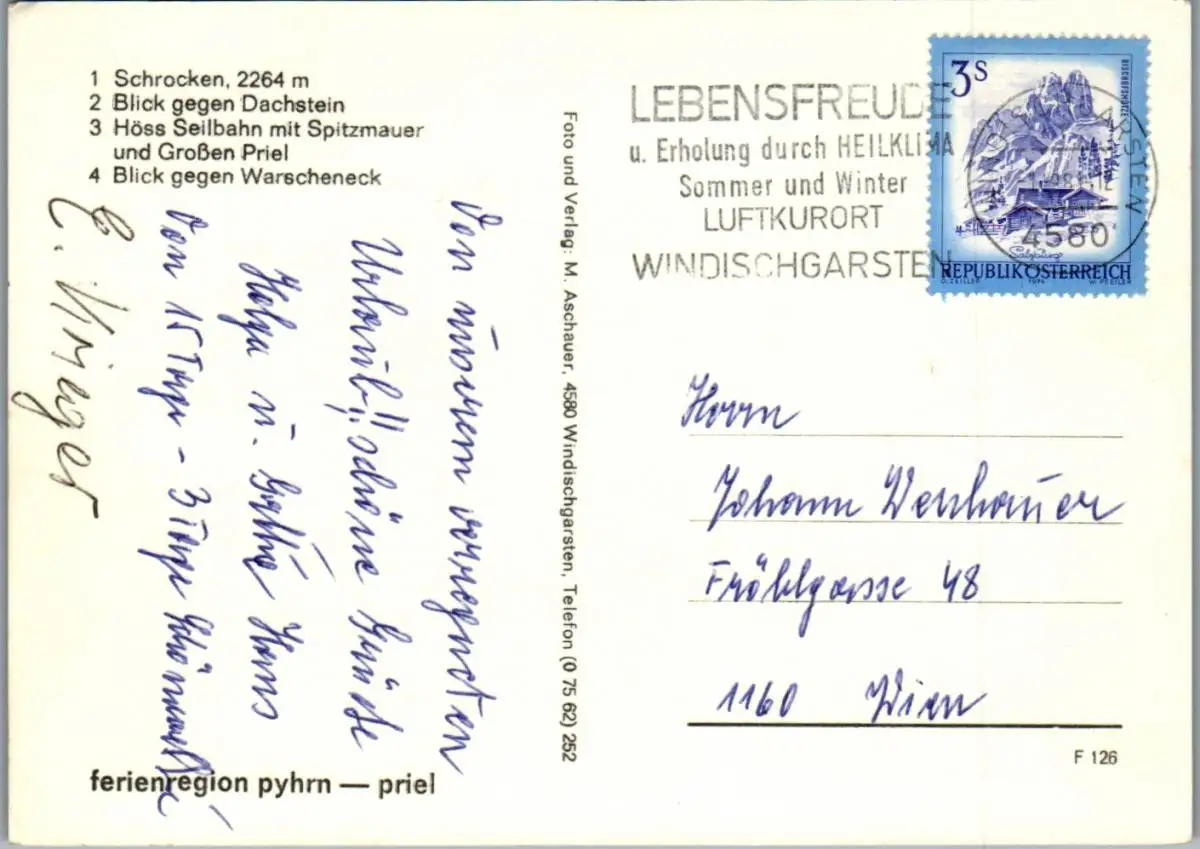 1 Schrocken, 2264 m
2 Blick gegen Dachstein
3 Höss Seilbahn mit Spitzmauer
und Großen Priel
4 Blick gegen Warscheneck
Von unserem verregneten
Urlaub!! schöne Grüße
Helga u. Gatte Hans
Von 15 Tage - 3 Tage Schönwetter
E. Krieger
ferienregion pyhrn — priel
Foto und Verlag: M. Aschauer, 4580 Windischgarsten, Telefon (0 75 62) 252
LEBENSFREUDE
u. Erholung durch HEILKLIMA
Sommer und Winter
LUFTKURORT
WINDISCHGARSTEN
3S
BISCHOFSMÜTZE
4580
Salzburg
REPUBLIK ÖSTERREICH
O. ZEILLER 1974
Herrn
Johann
Fröhlgasse 48
1160 Wien
F 126